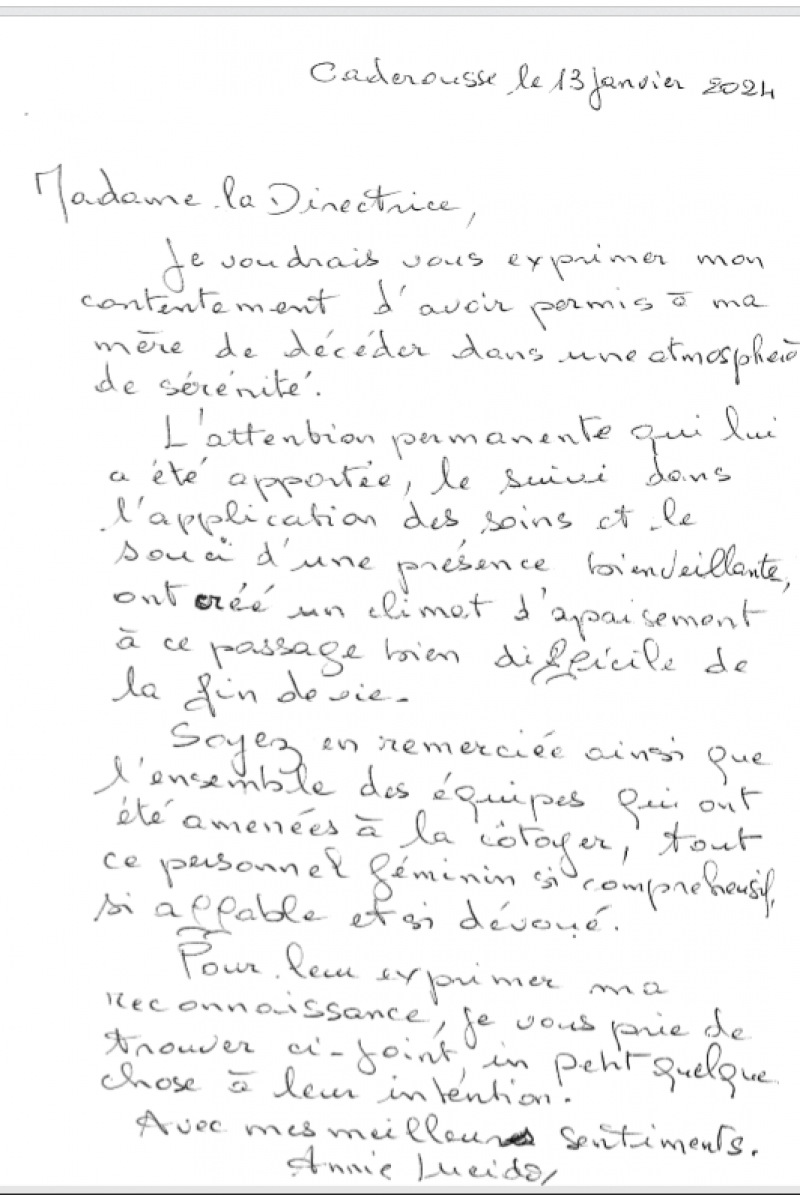 Caderousse le 13 janvier 2024
Madame la Directrice,
Je voudrais vous exprimer mon
contentement d'avoir permis à ma
mère de décéder dans une atmosphèr
de sérénité.
L'attention permanente qui lui
a été apportée, le suivi dans
l'application des soins et le
souci d'une présence bienveillante,
ont créé un climat d'apaisement
à ce passage bien difficile de
la fin de vie.
Soyez en remerciée ainsi que
l'ensemble des équipes qui ont
été amenées à la côtoyer, tout
ce personnel féminin si comprehensif,
si affable et si dévoué.
Pour leur exprimer ma
reconnaissance, je vous prie de
trouver ci-joint, un petit quelque
chose à leur intention.
Avec mes meilleurs sentiments.
Annie